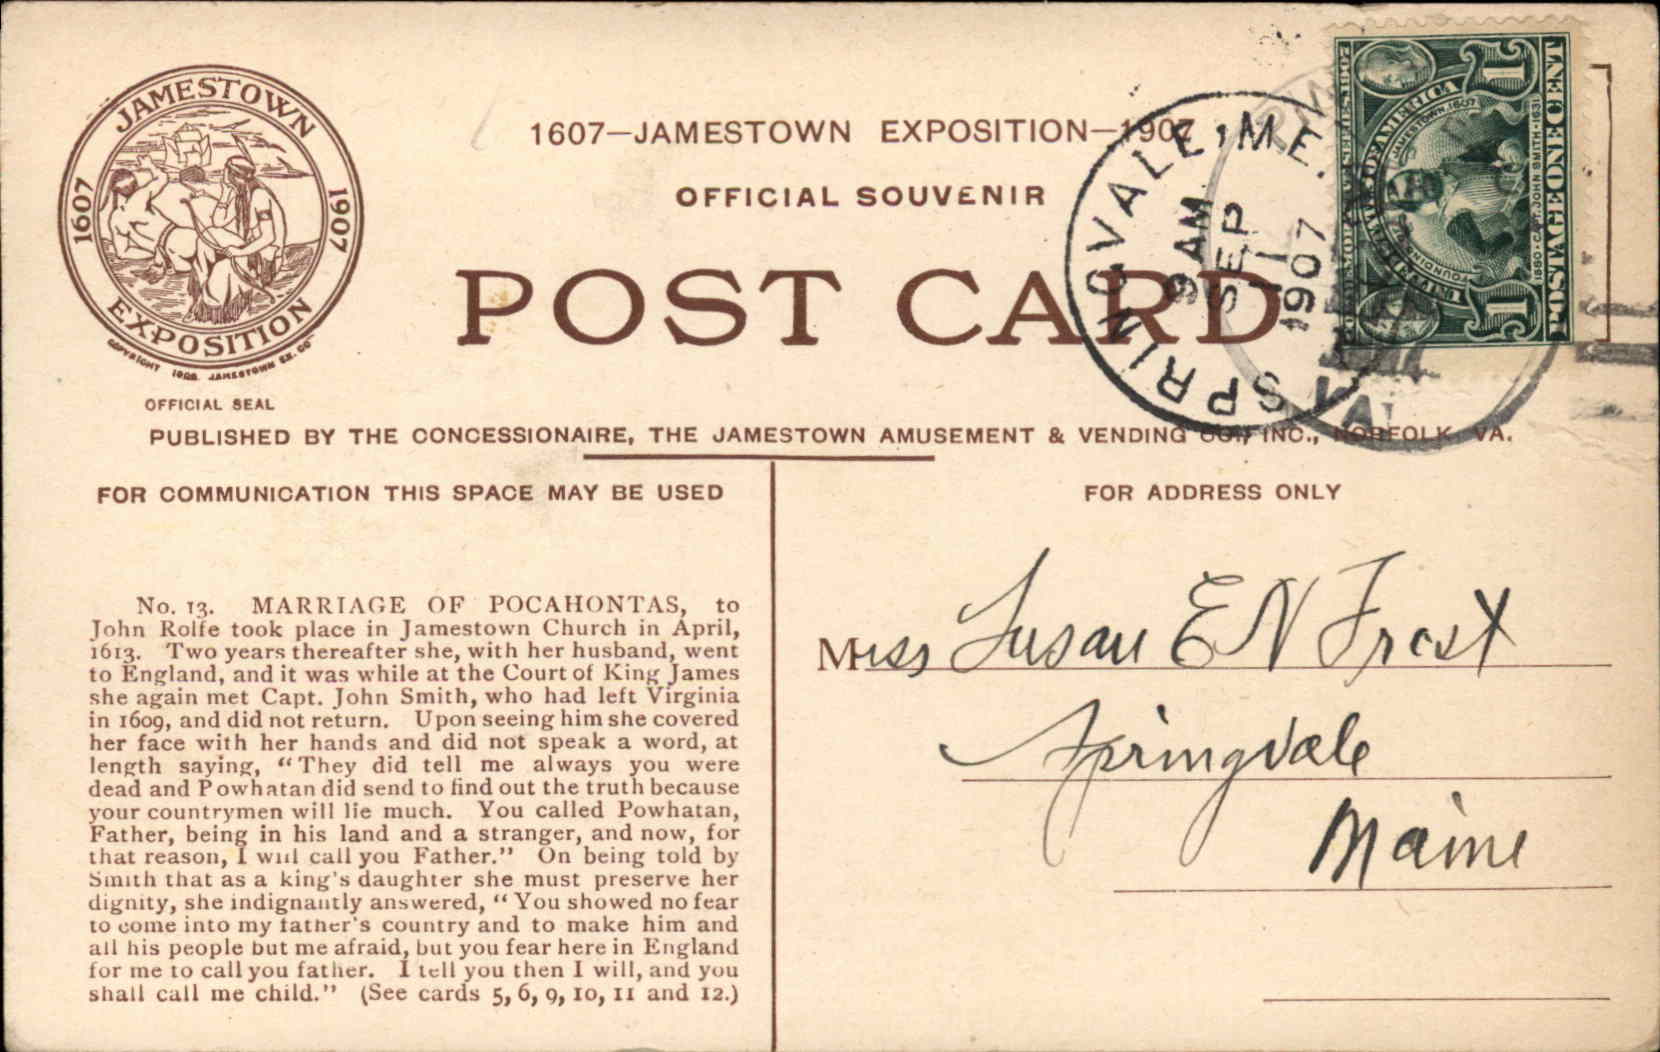 JAMESTOWN
1607
1907
EXPOSITION
COPYRIGHT 1906 JAMESTOWN EX. CO
OFFICIAL SEAL
1607—JAMESTOWN EXPOSITION—1907
OFFICIAL SOUVENIR
POST CARD
PUBLISHED BY THE CONCESSIONAIRE, THE JAMESTOWN AMUSEMENT & VENDING CO., INC., NORFOLK, VA.
SPRINGVALE, ME.
9 AM
SEP
11
1907
VA.
1
POSTAGE ONE CENT
1
1580 · CAPT. JOHN SMITH · 1631
JAMESTOWN, 1607
FOR COMMUNICATION THIS SPACE MAY BE USED
No. 13. MARRIAGE OF POCAHONTAS, to
John Rolfe took place in Jamestown Church in April,
1613. Two years thereafter she, with her husband, went
to England, and it was while at the Court of King James
she again met Capt. John Smith, who had left Virginia
in 1609, and did not return. Upon seeing him she covered
her face with her hands and did not speak a word, at
length saying, "They did tell me always you were
dead and Powhatan did send to find out the truth because
your countrymen will lie much. You called Powhatan,
Father, being in his land and a stranger, and now, for
that reason, I will call you Father." On being told by
Smith that as a king's daughter she must preserve her
dignity, she indignantly answered, "You showed no fear
to come into my father's country and to make him and
all his people but me afraid, but you fear here in England
for me to call you father. I tell you then I will, and you
shall call me child." (See cards 5, 6, 9, 10, 11 and 12.)
FOR ADDRESS ONLY
Miss Susan E N Frost
Springvale
Maine